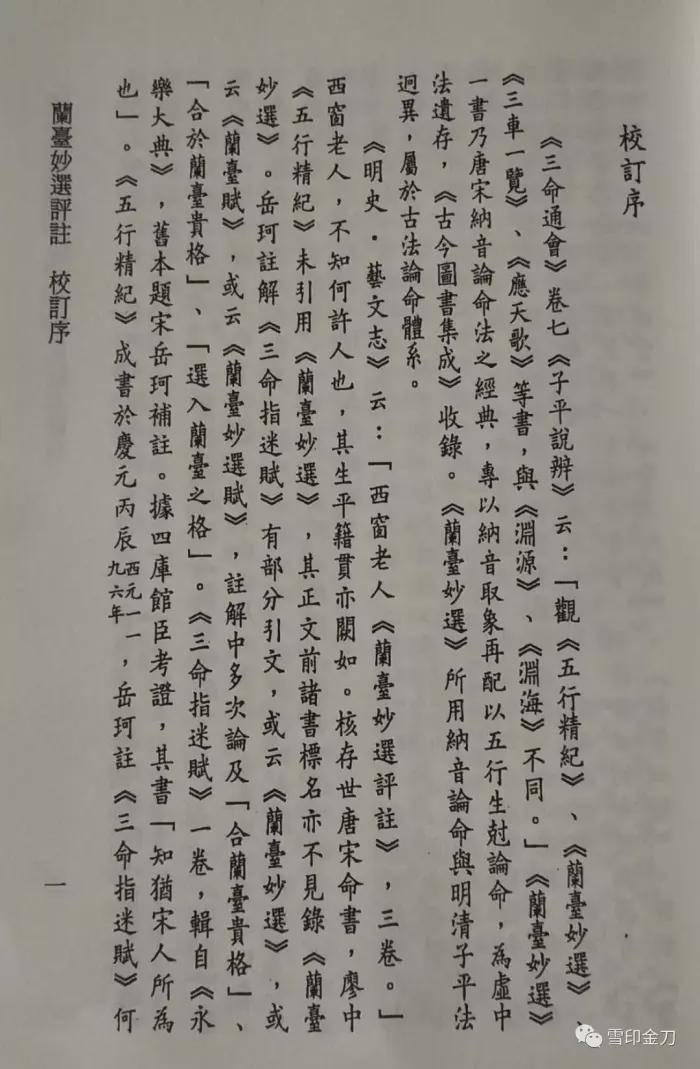 校訂序
《三命通會》卷七《子平說辨》云：「觀《五行精紀》、《蘭臺妙選》、
《三車一覽》、《應天歌》等書，與《淵源》、《淵海》不同。」《蘭臺妙選》
一書乃唐宋納音論命法之經典，專以納音取象再配以五行生尅論命，為虛中
法遺存，《古今圖書集成》收錄。《蘭臺妙選》所用納音論命與明清子平法
迥異，屬於古法論命體系。
《明史·藝文志》云：「西窗老人《蘭臺妙選評註》，三卷。」
西窗老人，不知何許人也，其生平籍貫亦闕如。核存世唐宋命書，廖中
《五行精紀》未引用《蘭臺妙選》，其正文前諸書標名亦不見錄《蘭臺
妙選》。岳珂註解《三命指迷賦》有部分引文，或云《蘭臺妙選》，或
云《蘭臺賦》，或云《蘭臺妙選賦》，註解中多次論及「合蘭臺貴格」、
「合於蘭臺貴格」、「選入蘭臺之格」。《三命指迷賦》一卷，輯自《永
樂大典》，舊本題宋岳珂補註。據四庫館臣考證，其書「知猶宋人所為
也」。《五行精紀》成書於慶元丙辰西元一一九六年，岳珂註《三命指迷賦》何
蘭臺妙選評註 校訂序
一
雪印金刀